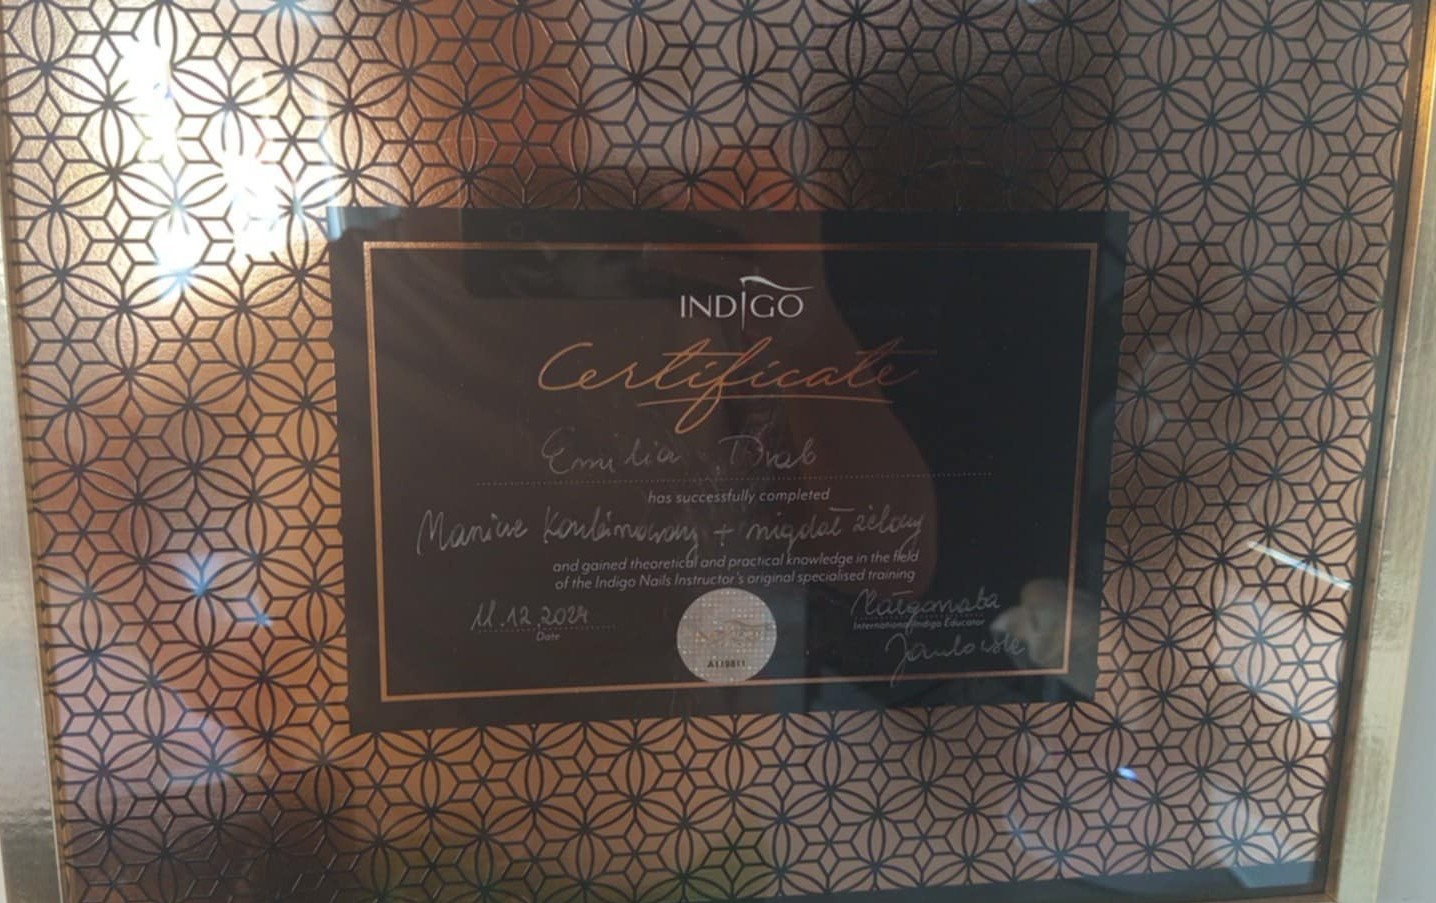 INDIGO
Certificate
Emilia
has successfully completed
Manicure Kombinowany + migdał żelowy
and gained theoretical and practical knowledge in the field
of the Indigo Nails Instructor's original specialised training
11.12.2024
Date
INDIGO
Małgorzata
International Indigo Educator